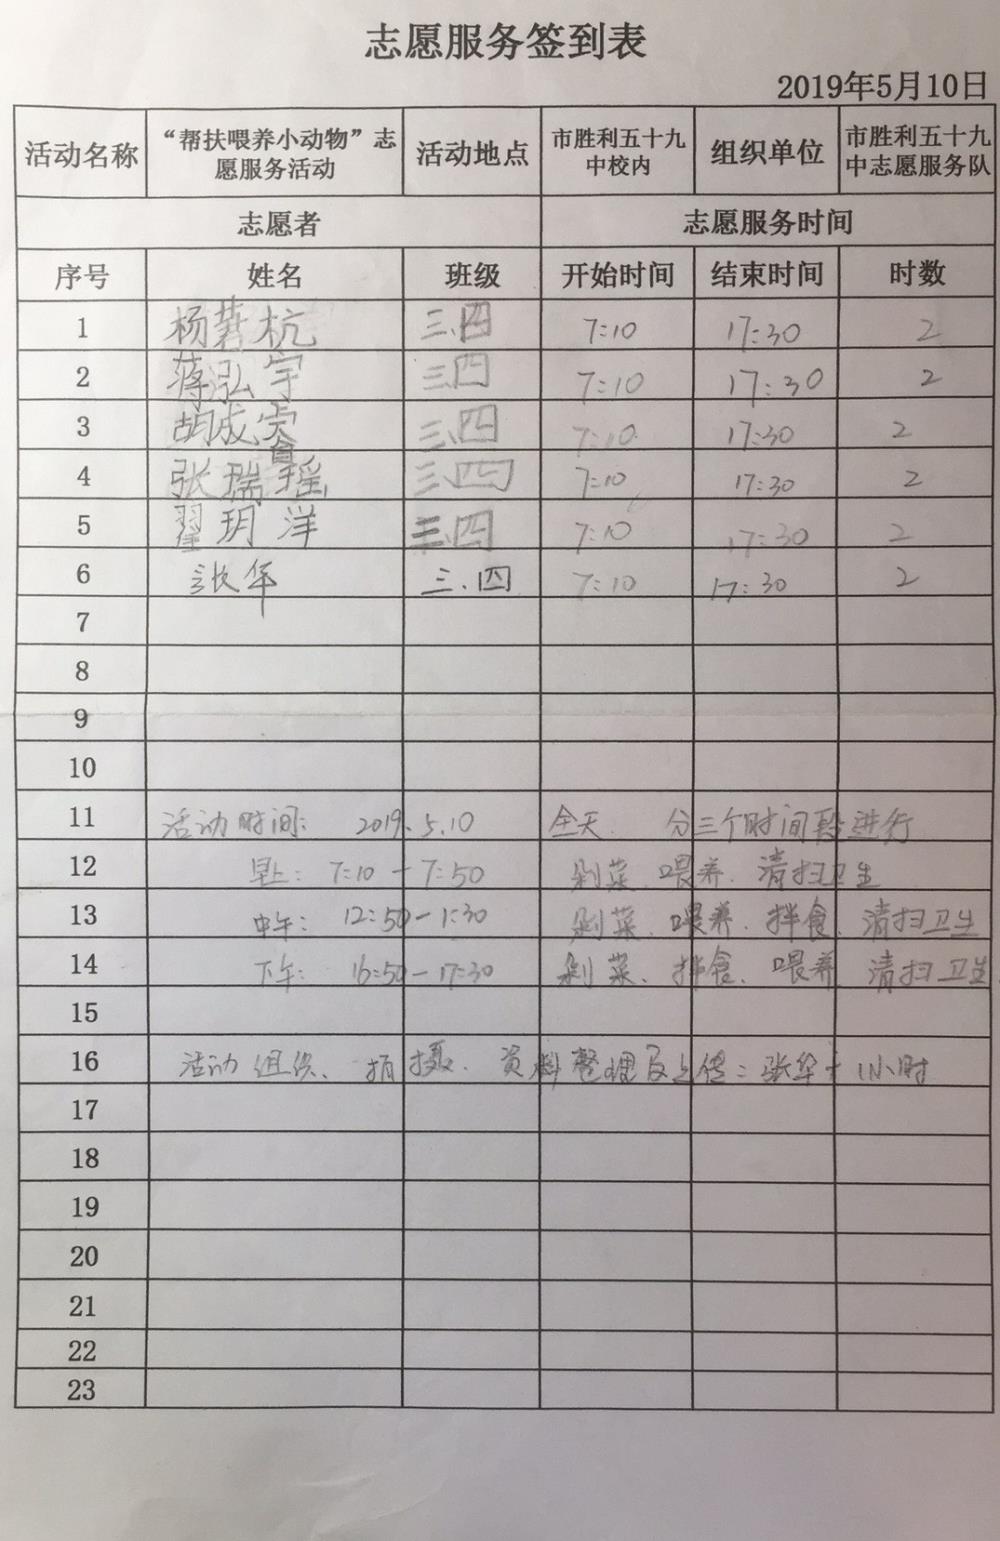 志愿服务签到表
2019年5月10日
活动名称 “帮扶喂养小动物”志愿服务活动 活动地点 市胜利五十九中校内 组织单位 市胜利五十九中志愿服务队
志愿者 志愿服务时间
序号 姓名 班级 开始时间 结束时间 时数
1 杨 杭 三.四 7:10 17:30 2
2 蒋泓宇 三.四 7:10 17:30 2
3 胡成 三.四 7:10 17:30 2
4 张瑞瑶 三.四 7:10 17:30 2
5 翟玥洋 三.四 7:10 17:30 2
6 张华 三.四 7:10 17:30 2
7
8
9
10
11 活动时间: 2019.5.10 全天 分三个时间段进行
12 早上: 7:10-7:50 剁菜、喂养、清扫卫生
13 中午: 12:50-1:30 剁菜、喂养、拌食、清扫卫生
14 下午: 16:50-17:30 剁菜、拌食、喂养、清扫卫生
15
16 活动组织、拍摄、资料整理及上传:张华+1小时
17
18
19
20
21
22
23